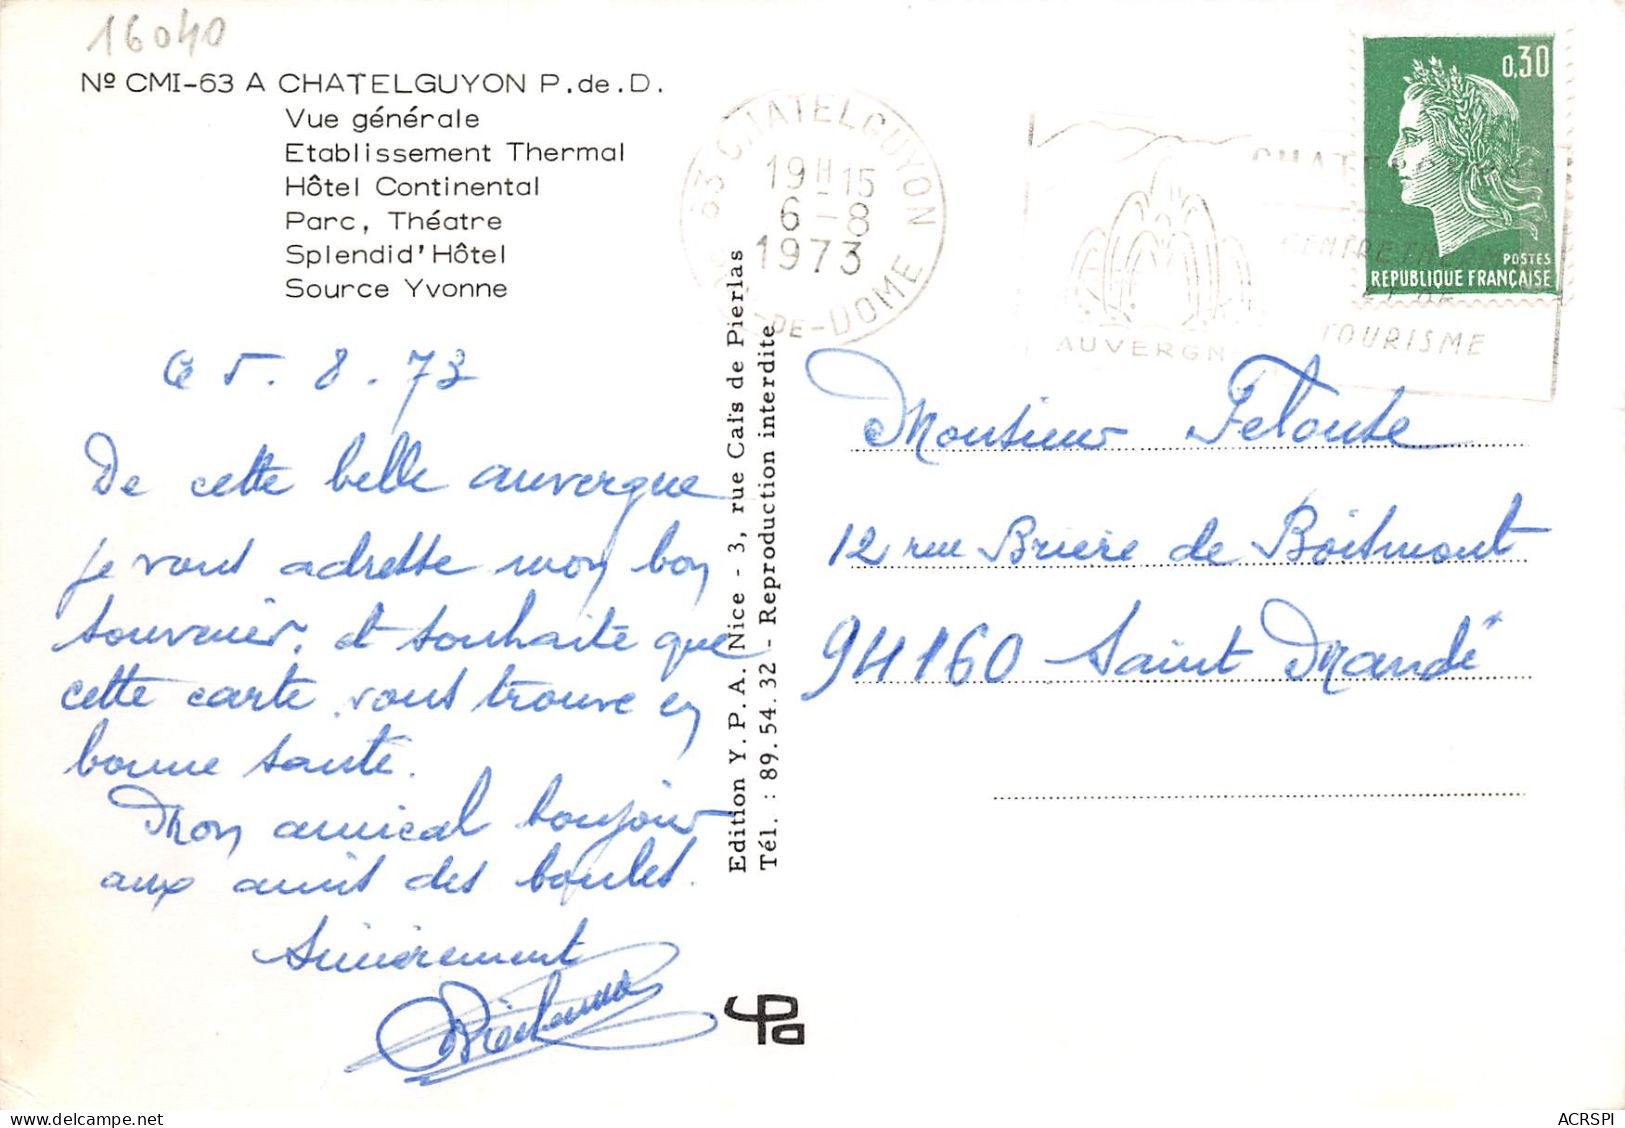 16040
Nº CMI-63 A CHATELGUYON P.de.D.
Vue générale
Etablissement Thermal
Hôtel Continental
Parc, Théatre
Splendid'Hôtel
Source Yvonne
Ce 5.8.73
De cette belle auvergne
je vous adresse mon bon
souvenir, et souhaite que
cette carte vous trouve en
bonne santé.
Mon amical bonjour
aux amis des boules.
Sincèrement
Edition Y.P.A. Nice - 3, rue Caïs de Pierlas
Tél. : 89.54.32 - Reproduction interdite
63 CHATELGUYON
19H15
6-8
1973
-DE-DOME
AUVERGN
TOURISME
0,30
POSTES
REPUBLIQUE FRANÇAISE
Monsieur
12 rue Brière de Boismont
94160 Saint Mandé
ypa
delcampe.net
ACRSPI